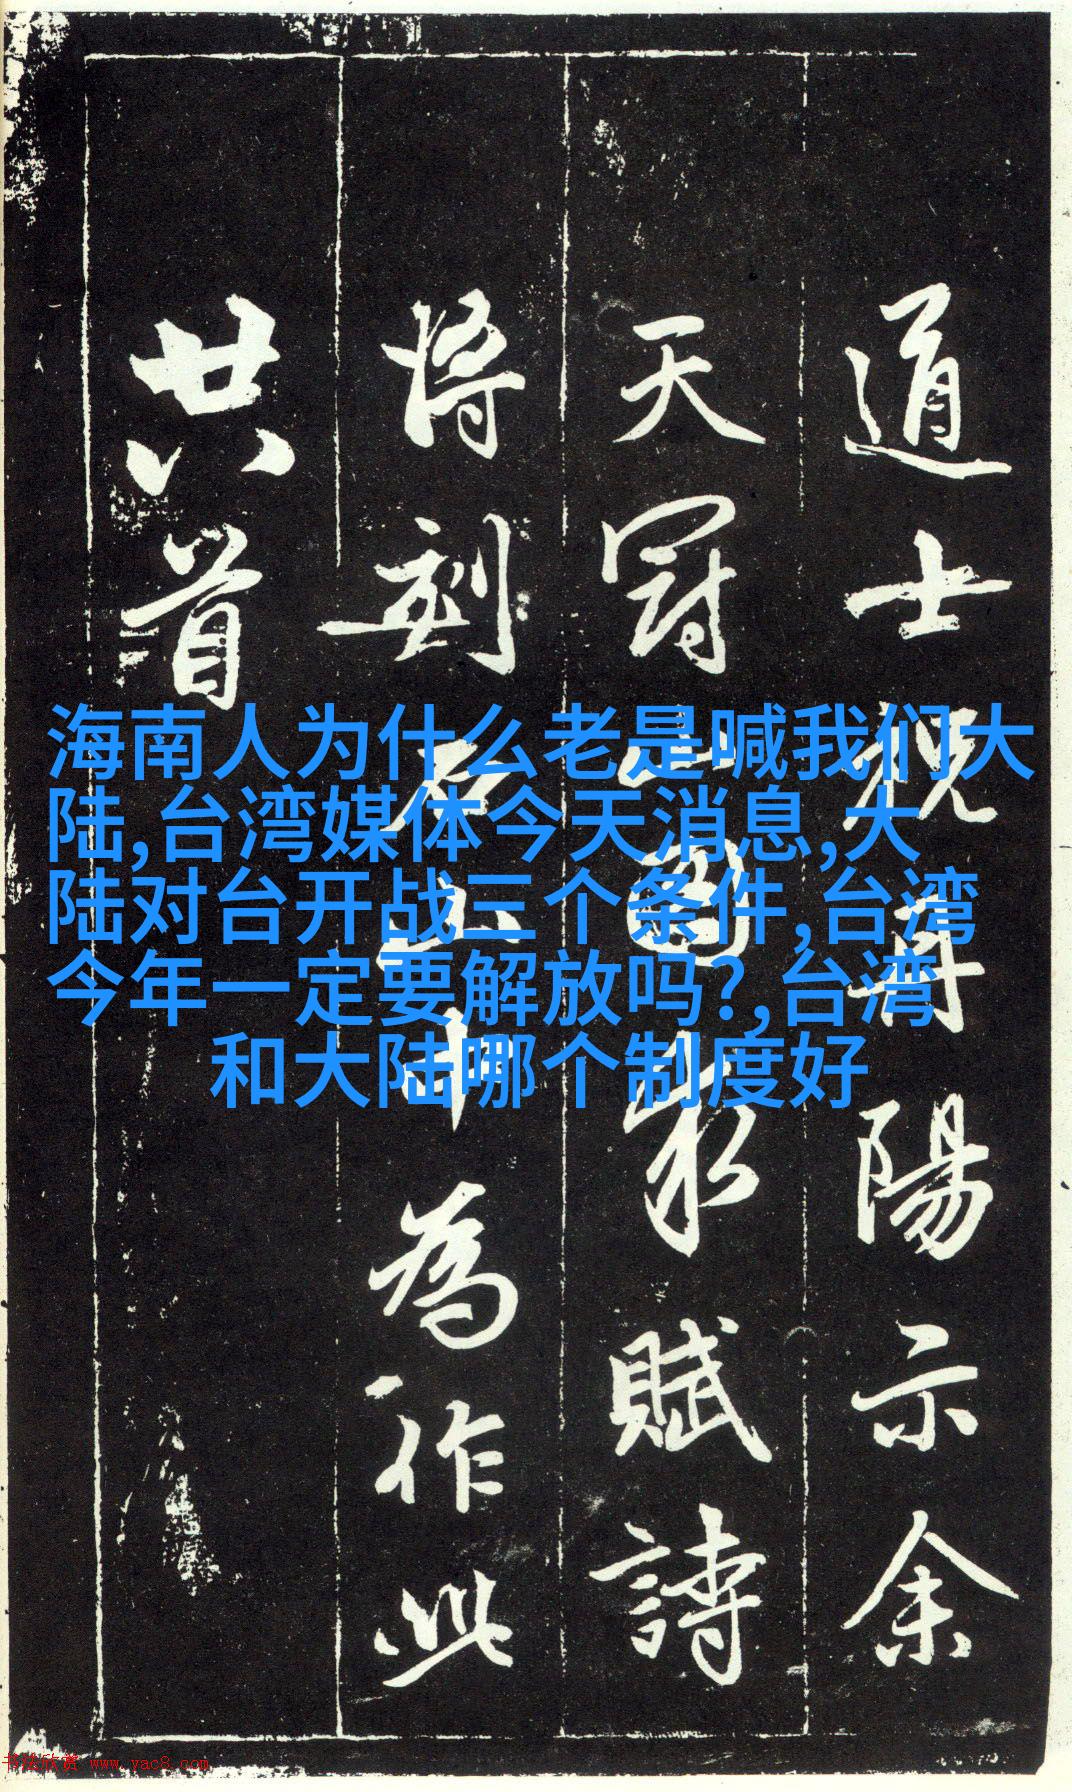 道士祝丹陽示余
天冠山圖求賦詩
將刻石山中為作此
廿八首
海南人为什么老是喊我们大
陆,台湾媒体今天消息,大
陆对台开战三个条件,台湾
今年一定要解放吗?,台湾
和大陆哪个制度好
书法欣赏 www.yac8.com